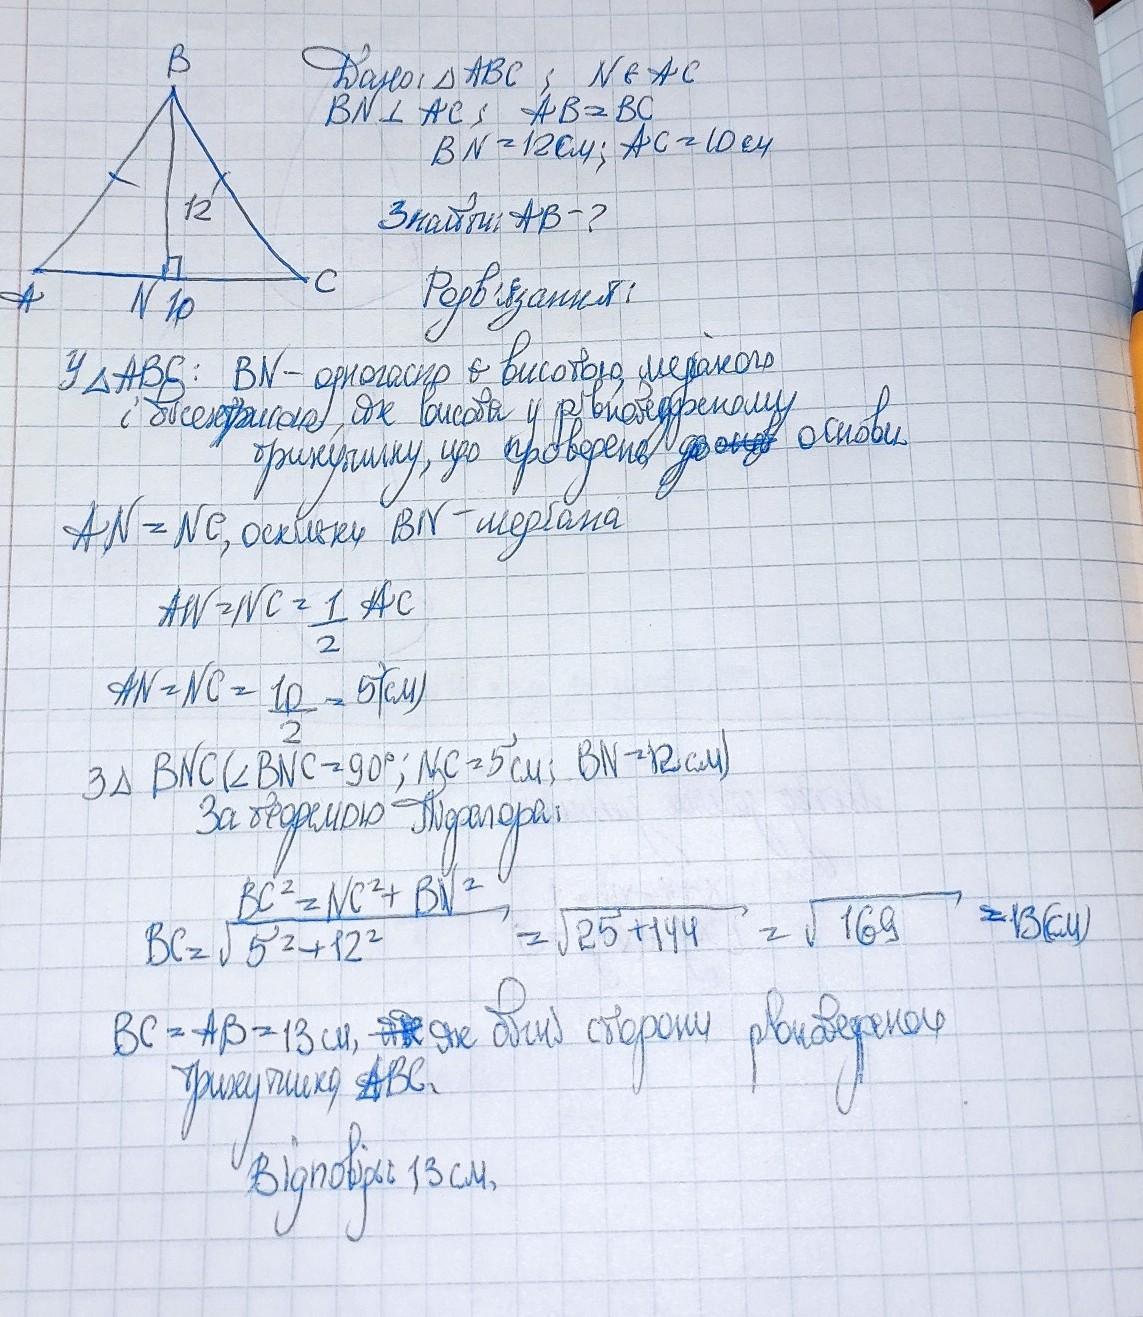 B
12
A
N 10
C
Дано: △ ABC ; N ∈ AC
BN ⊥ AC ; AB = BC
BN = 12см; AC = 10 см
Знайти: AB - ?
Розв'язання:
У △ ABC: BN - одночасно є висотою, медіаною
і бісектрисою, як висота у рівнобедреному
трикутнику, що проведена до основи
AN = NC, оскільки BN - медіана
AN = NC = 1/2 AC
AN = NC = 10/2 = 5(см)
З △ BNC (∠BNC = 90°; NC = 5 см; BN = 12 см)
За теоремою Піфагора:
BC² = NC² + BN²
BC = √5² + 12² = √25 + 144 = √169 = 13(см)
BC = AB = 13 см, як бічні сторони рівнобедреного
трикутника ABC.
Відповідь: 13 см.